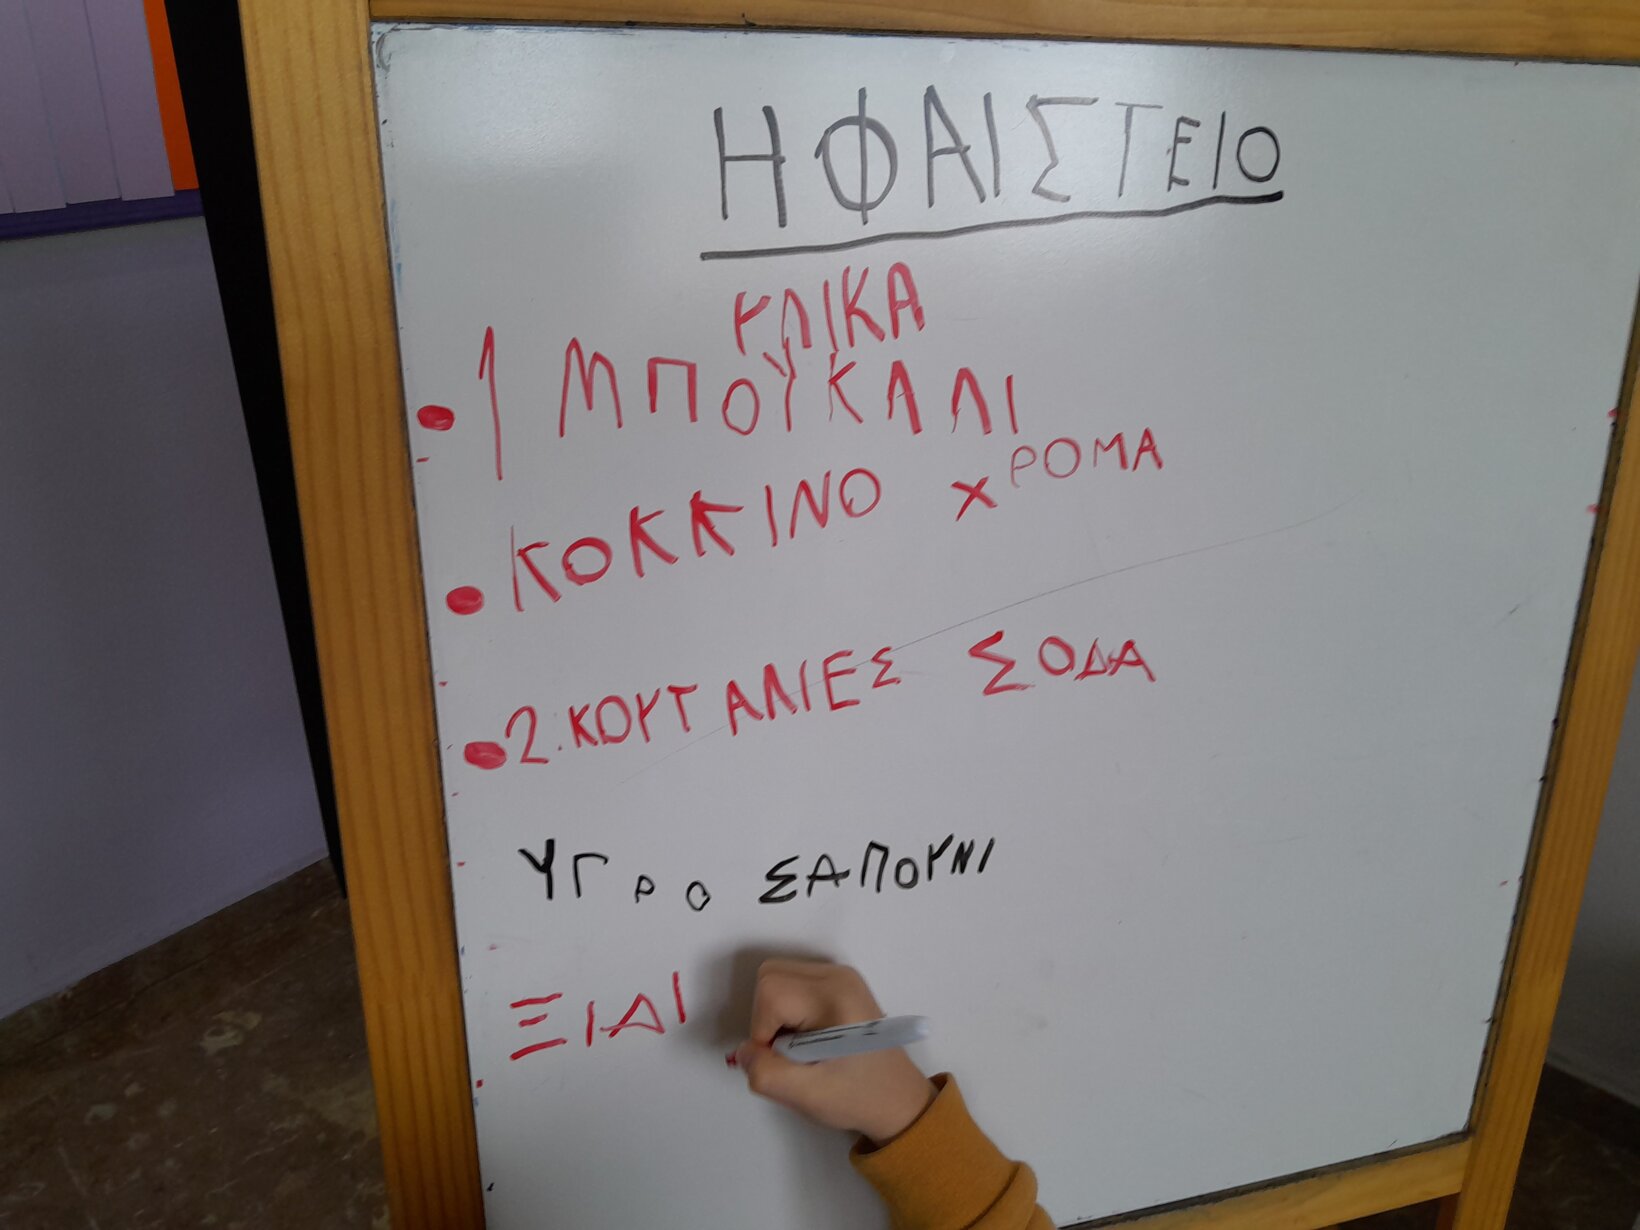 ΗΦΑΙΣΤΕΙΟ
ΥΛΙΚΑ
1 ΜΠΟΥΚΑΛΙ
ΚΟΚΚΙΝΟ ΧΡΟΜΑ
2.ΚΟΥΤΑΛΙΕΣ ΣΟΔΑ
ΥΓΡΟ ΣΑΠΟΥΝΙ
ΞΙΔΙ